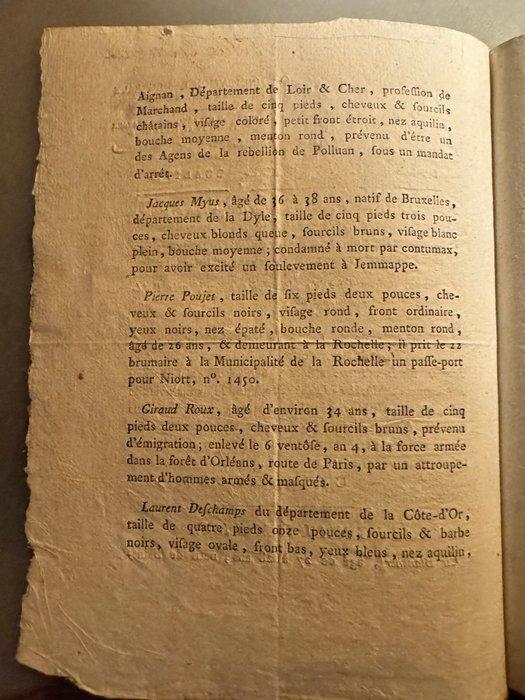 Aignan , Département de Loir & Cher , profeſſion de
Marchand , taille de cinq pieds , cheveux & ſourcils
châtains , viſage coloré, petit front étroit , nez aquilin ,
bouche moyenne , menton rond , prévenu d'être un
des Agens de la rebellion de Polluan , ſous un mandat
d'arrêt.
Jacques Myus , âgé de 36 à 38 ans , natif de Bruxelles,
département de la Dyle, taille de cinq pieds trois pou-
ces, cheveux blonds queue , ſourcils bruns, viſage blanc
plein, bouche moyenne ; condamné à mort par contumax,
pour avoir excité un ſoulevement à Jemmappe.
Pierre Poujet , taille de ſix pieds deux pouces, che-
veux & ſourcils noirs , viſage rond , front ordinaire ,
yeux noirs , nez épaté , bouche ronde , menton rond ,
âgé de 26 ans , & demeurant à la Rochelle ; il prit le 22
brumaire à la Municipalité de la Rochelle un paſſe-port
pour Niort, nº. 1450.
Giraud Roux, âgé d'environ 34 ans , taille de cinq
pieds deux pouces , cheveux & ſourcils bruns , prévenu
d'émigration ; enlevé le 6 ventôſe, an 4, à la force armée
dans la forêt d'Orlénns , route de Paris , par un attroupe-
ment d'hommes armés & maſqués.
Laurent Deſchamps du département de la Côte-d'Or,
taille de quatre pieds onze pouces , ſourcils & barbe
noirs, viſage ovale , front bas, yeux bleus , nez aquilin,